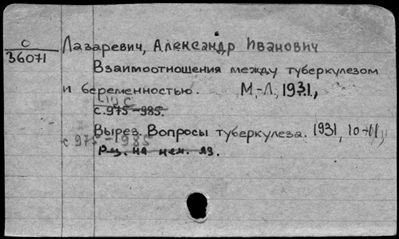 О
36071
Лазаревич, Александр Иванович
Взаимоотношения между туберкулезом
и беременностью. М.-Л., 1931,
с. 975-985.
Вырез. Вопросы туберкулеза. 1931, 10-11,
с 975-985
Рез. на нем. яз.